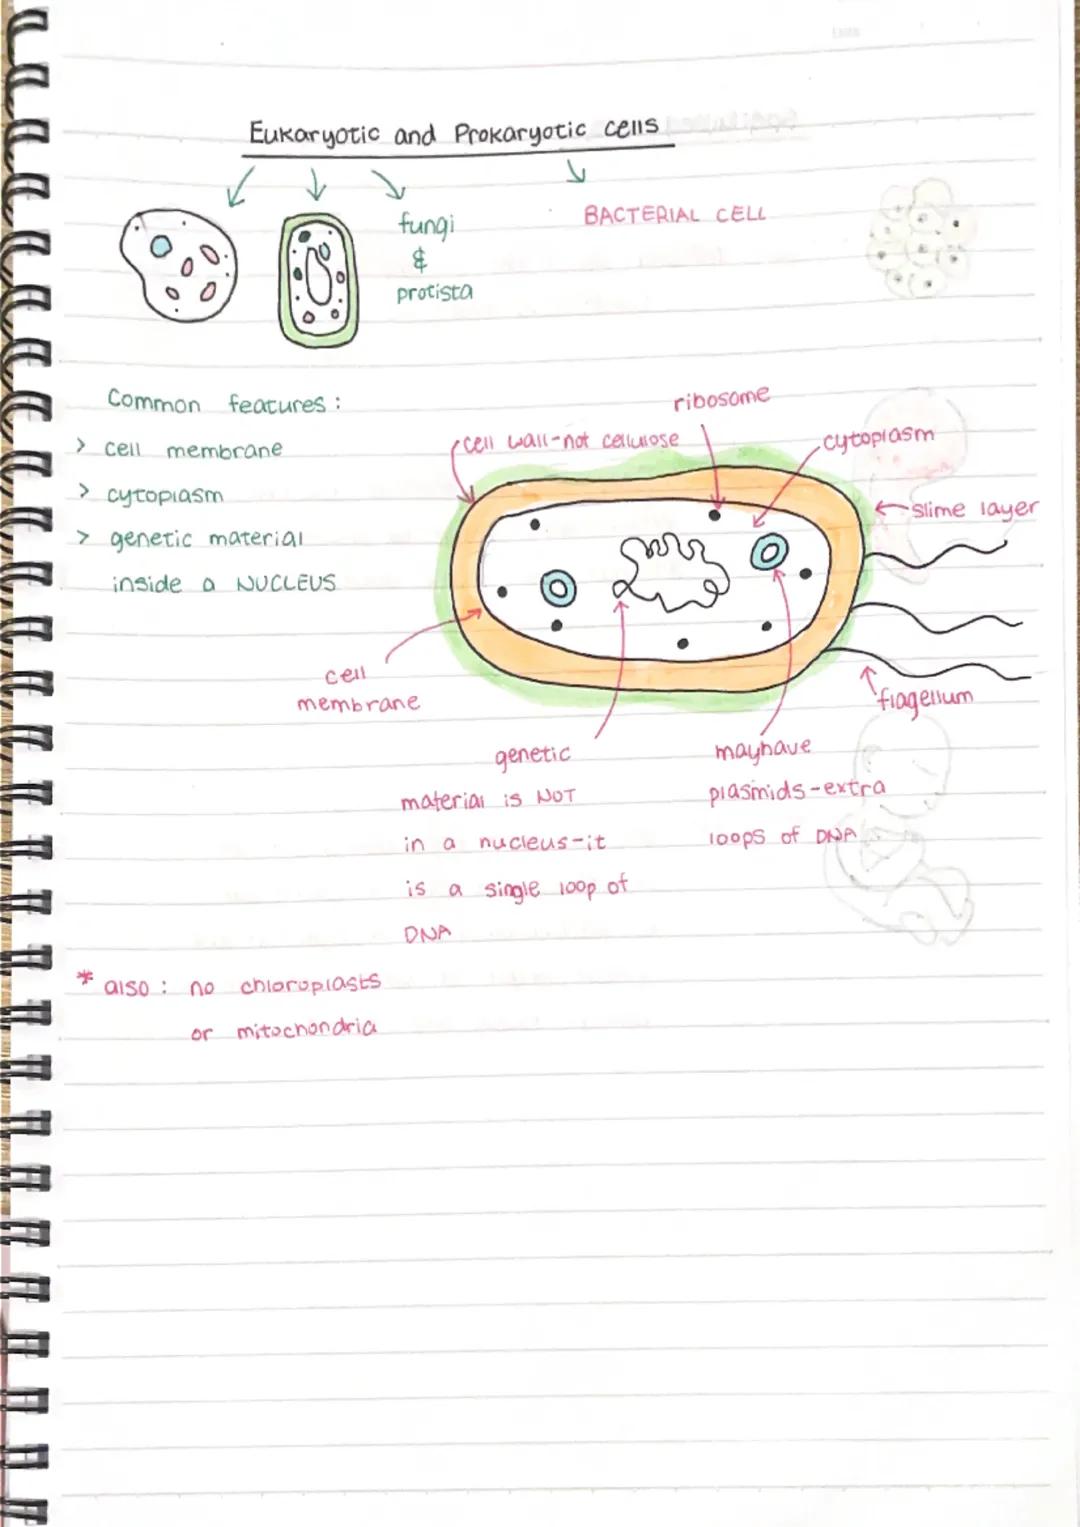 Eukaryotic and Prokaryotic cells
fungi
&
protista
BACTERIAL CELL
Common features :
> cell membrane
> cytoplasm
> genetic material
inside a NUCLEUS
ribosome
cell wall-not cellulose
cytoplasm
slime layer
cell
membrane
flagellum
genetic
material is NOT
in a nucleus-it
is a single loop of
DNA
mayhave
plasmids-extra
loops of DNA
* also : no chloroplasts
or mitochondria